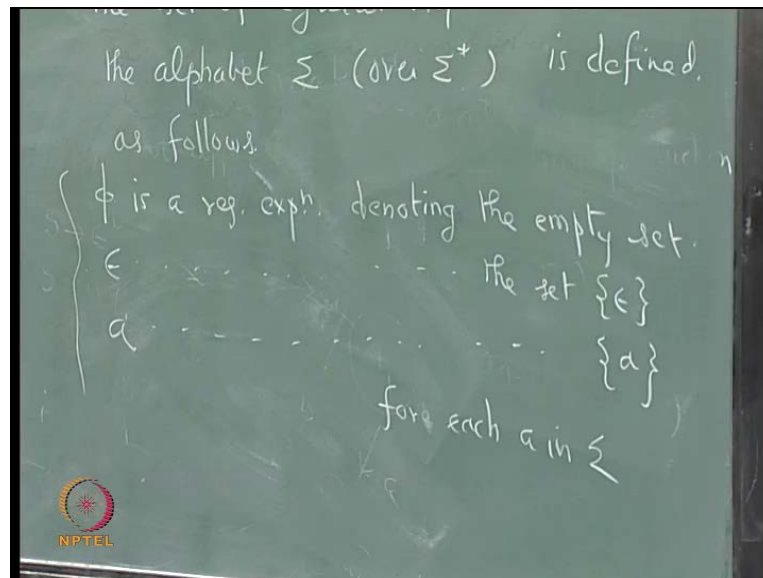 the set of regular
the alphabet Σ (over Σ*) is defined.
as follows
ϕ is a reg. expn. denoting the empty set.
ϵ . . . . . . . . . . . . the set {ϵ}
a . . . . . . . . . . . . {a}
for each a in Σ
NPTEL